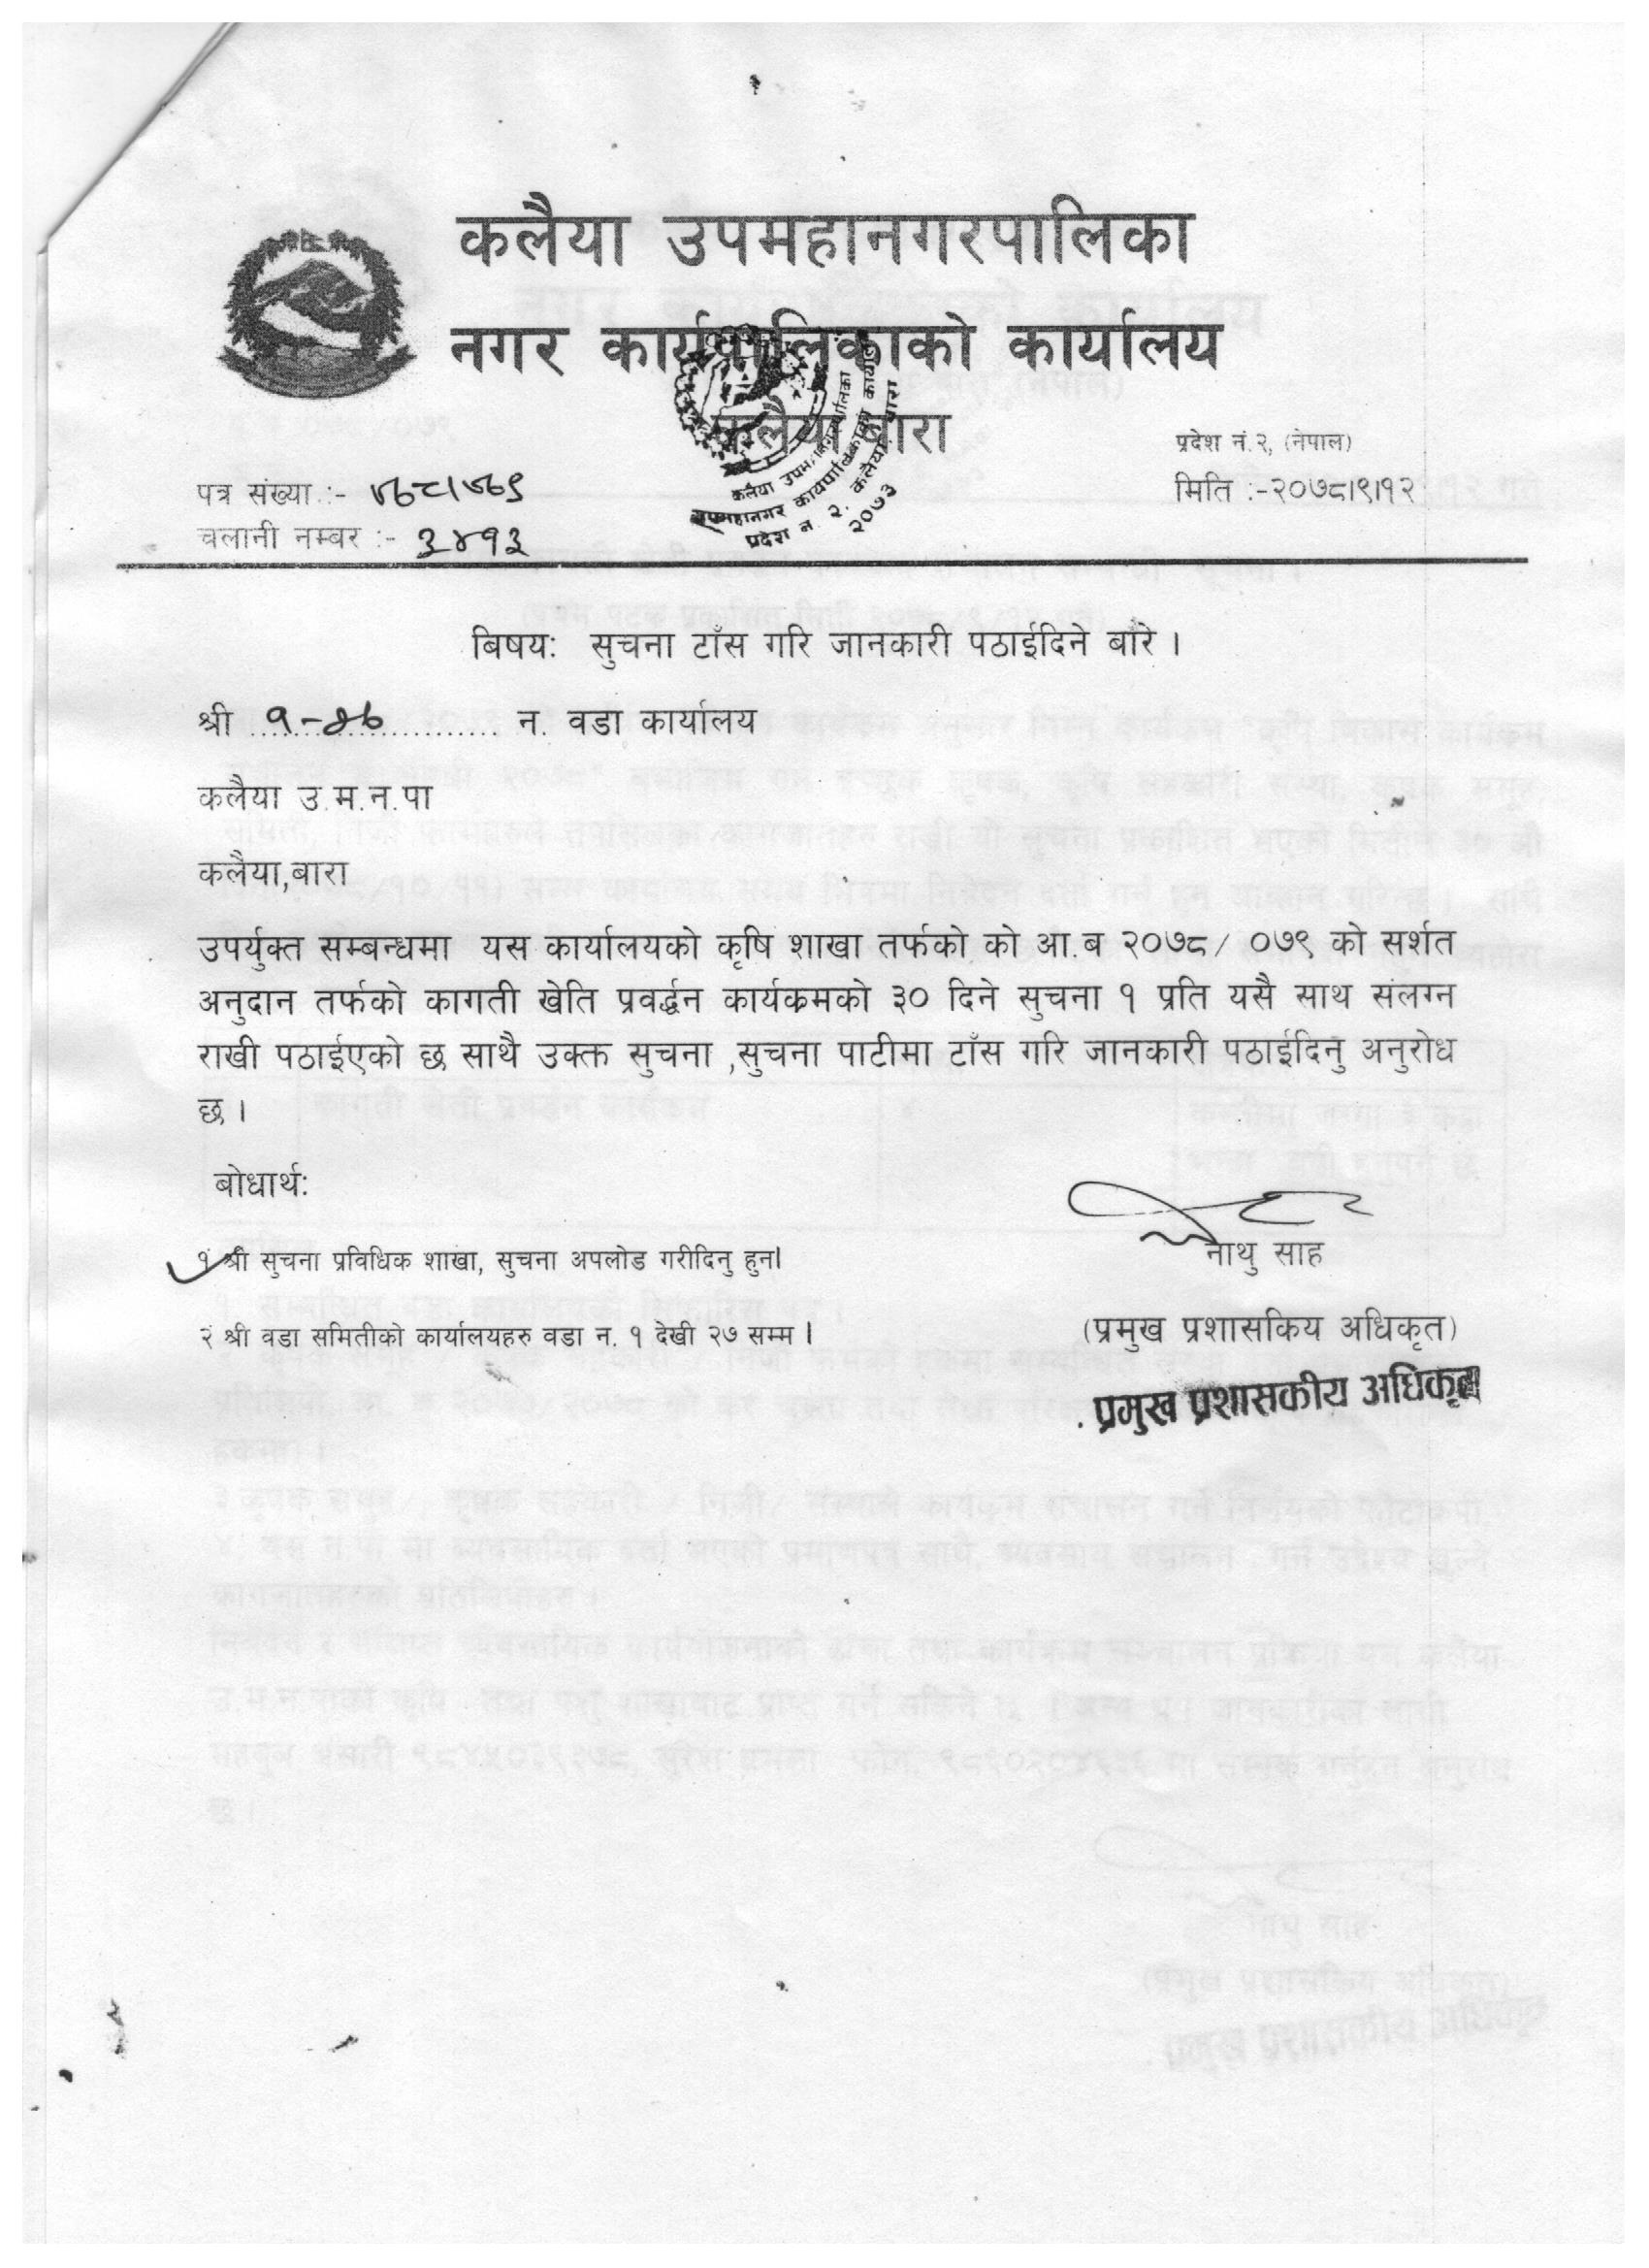 कलैया उपमहानगरपालिका
नगर कार्यपालिकाको कार्यालय
कलैया बारा
प्रदेश नं.२, (नेपाल)
पत्र संख्या :- ७८।७९
मिति :-२०७८।९।१२
चलानी नम्बर :- ३४१३
कलैया उपमहानगरपालिका
उपमहानगर कार्यपालिकाको कार्यालय
प्रदेश न. २, कलैया बारा
२०७३
बिषय: सुचना टाँस गरि जानकारी पठाईदिने बारे ।
श्री १-२७ न. वडा कार्यालय
कलैया उ.म.न.पा
कलैया,बारा
उपर्युक्त सम्बन्धमा यस कार्यालयको कृषि शाखा तर्फको को आ.ब २०७८/ ०७९ को सर्शत
अनुदान तर्फको कागती खेति प्रवर्द्धन कार्यक्रमको ३० दिने सुचना १ प्रति यसै साथ संलग्न
राखी पठाईएको छ साथै उक्त सुचना ,सुचना पाटीमा टाँस गरि जानकारी पठाईदिनु अनुरोध
छ ।
बोधार्थ:
१ श्री सुचना प्रविधिक शाखा, सुचना अपलोड गरीदिनु हुन।
नाथु साह
२ श्री वडा समितीको कार्यालयहरु वडा न. १ देखी २७ सम्म ।
(प्रमुख प्रशासकिय अधिकृत)
प्रमुख प्रशासकीय अधिकृत